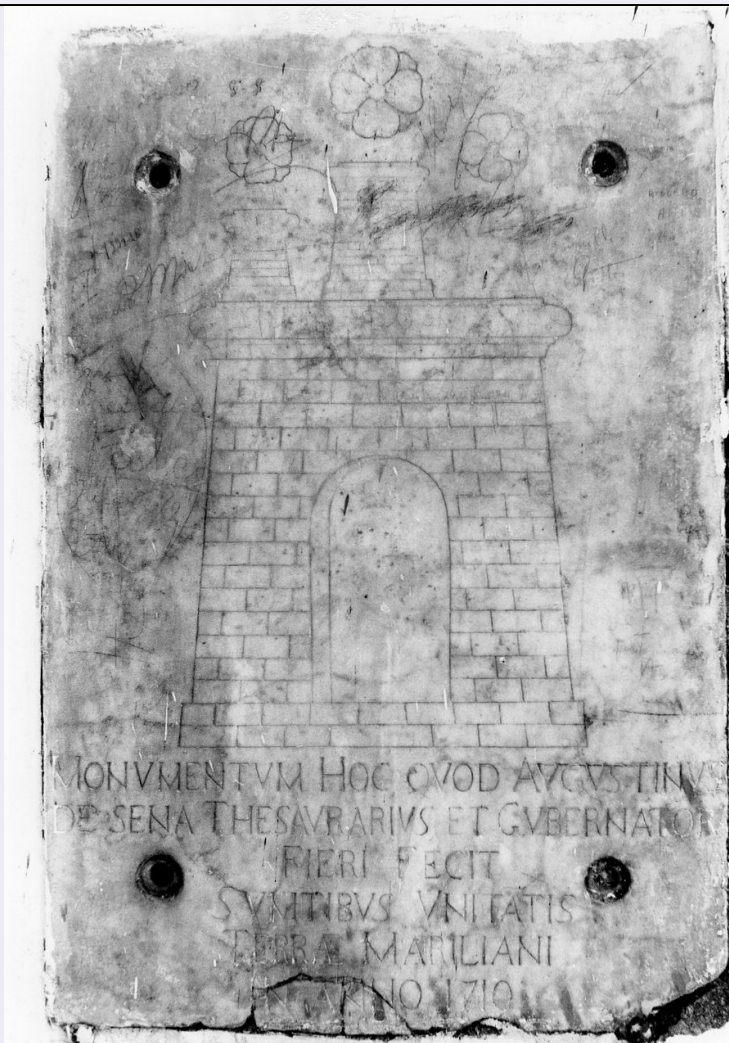 MONVMENTVM HOC QVOD AVGVSTINVS
DE SENA THESAVRARIVS ET GVBERNATOR
FIERI FECIT
SVMTIBVS VNITATIS
TERRÆ MARILIANI
IN ANNO 1710